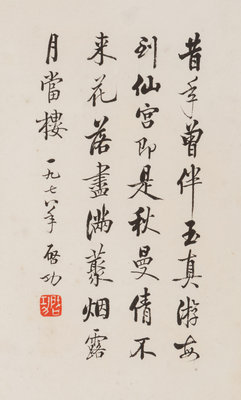 昔年曾伴玉真游每
到仙宫即是秋曼倩不
来花落盡滿藂烟露
月當樓 一九七八年 啓功